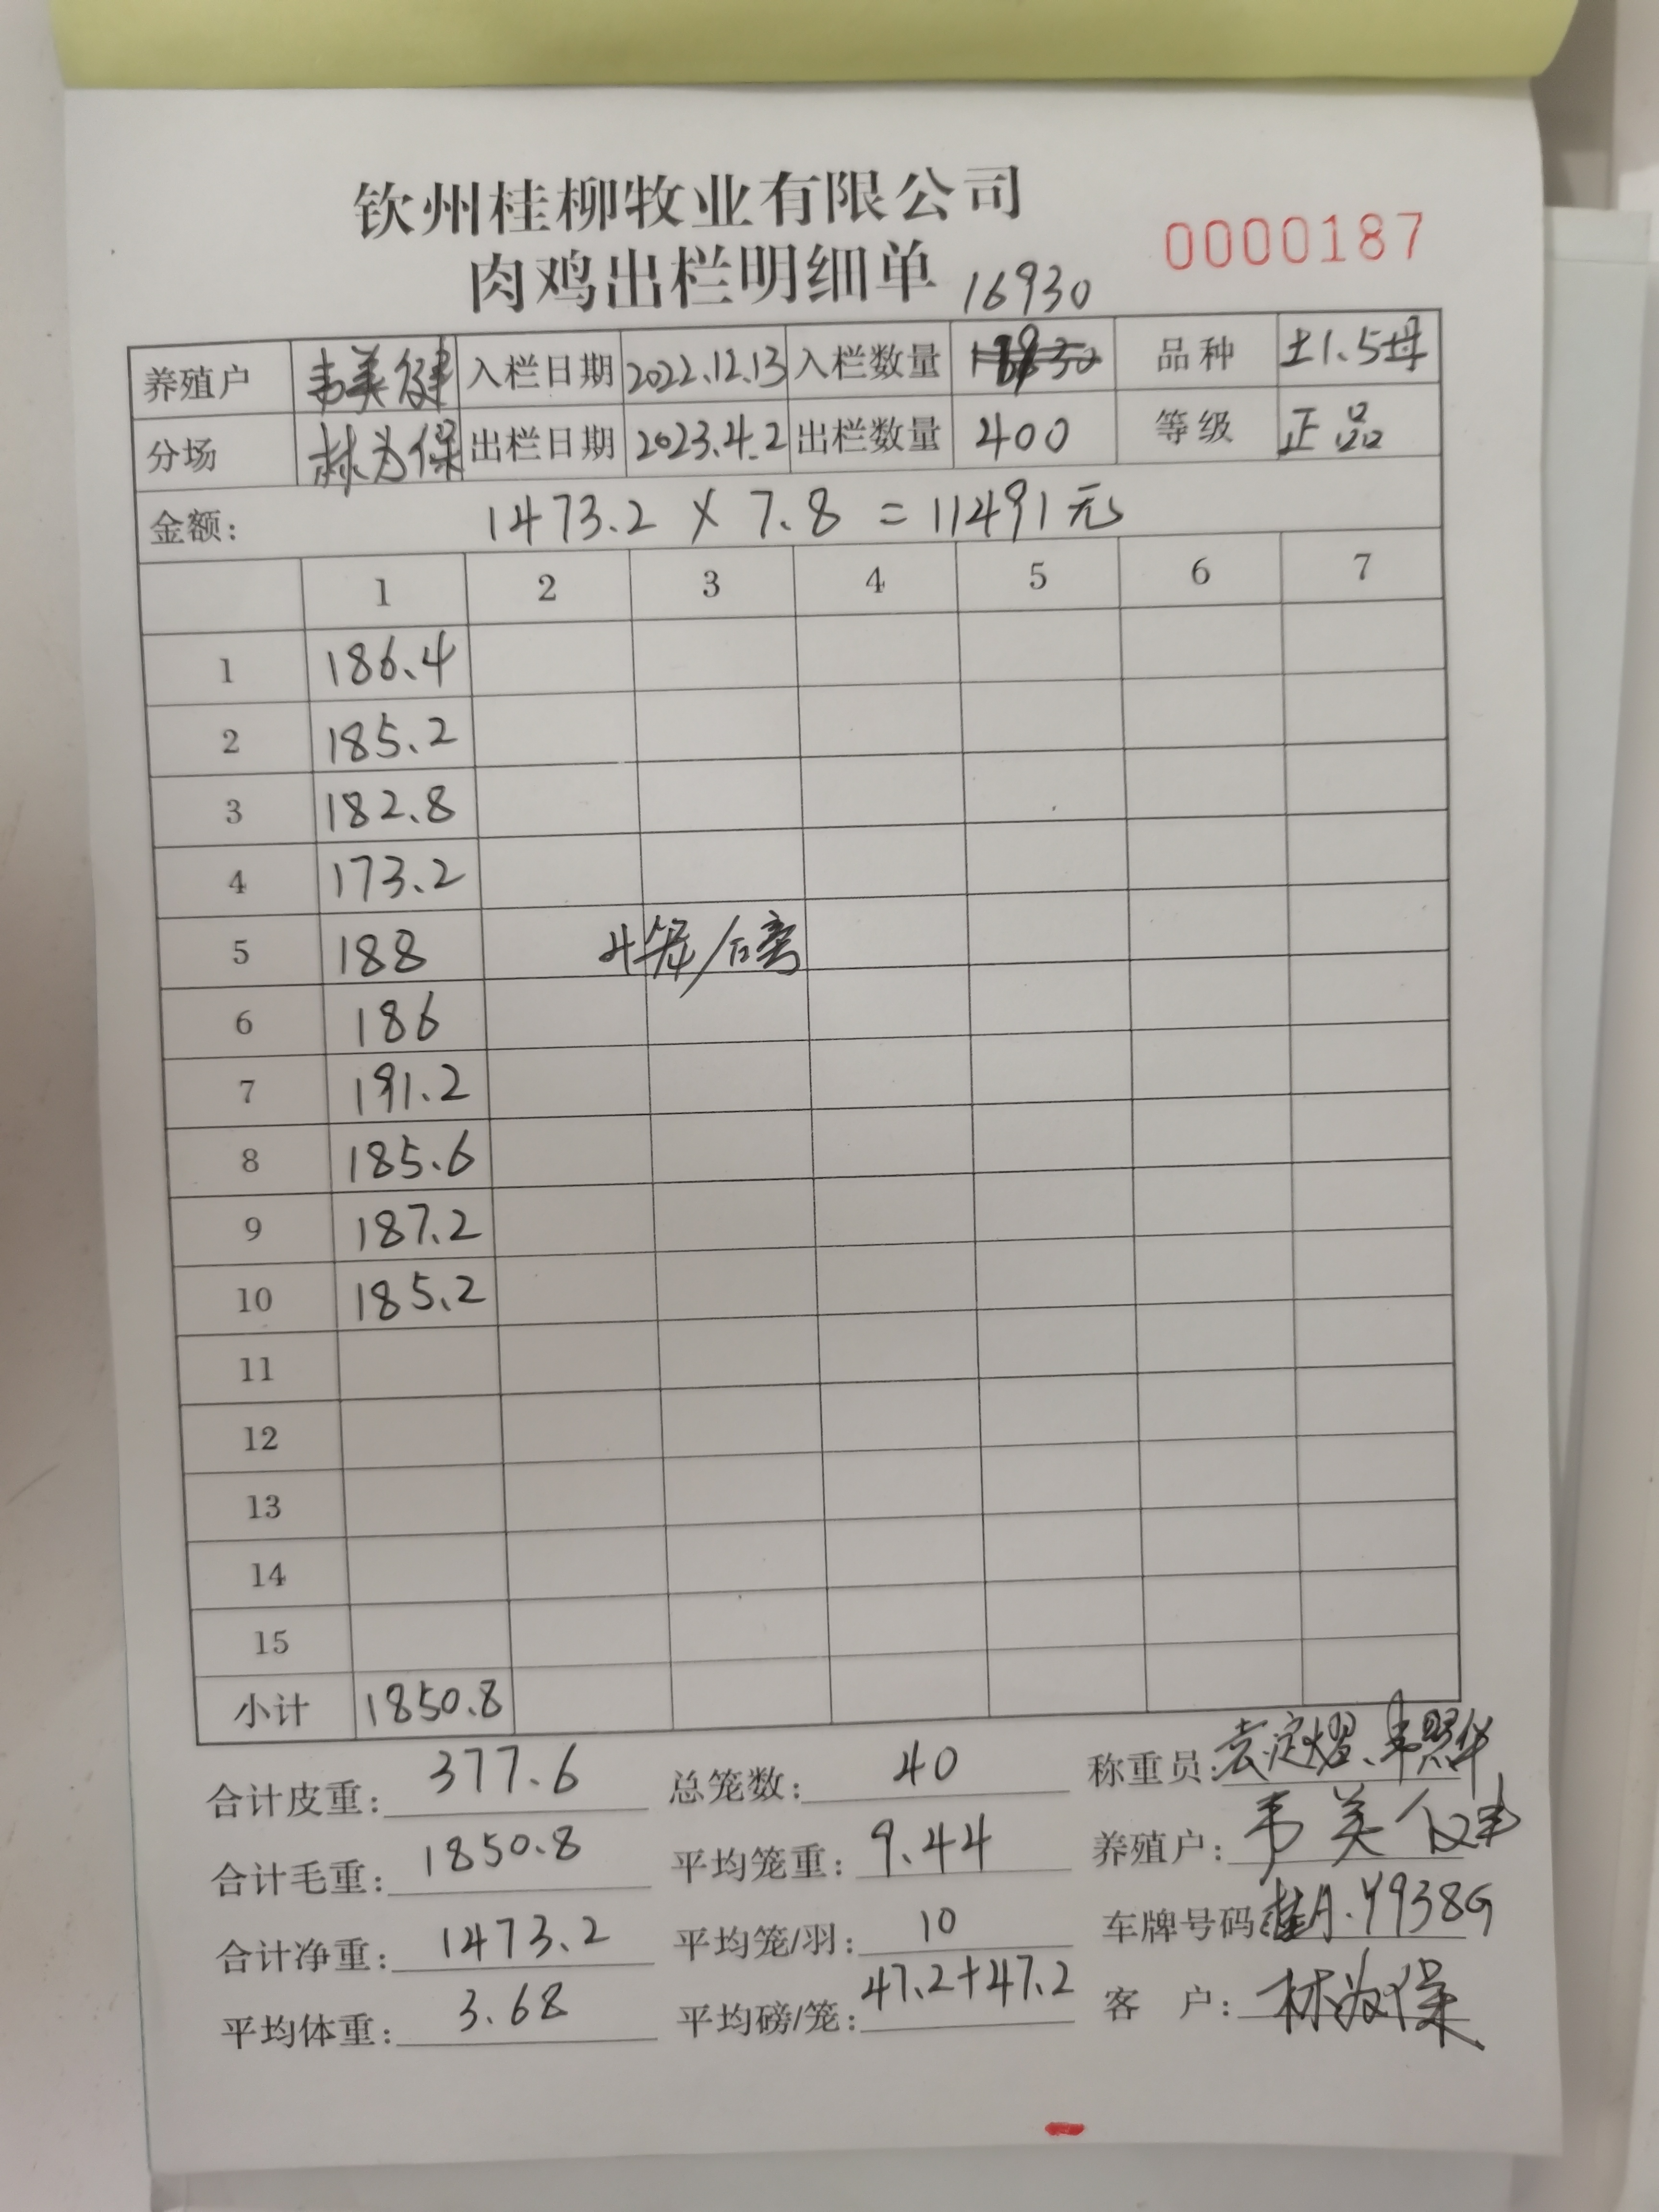 钦州桂柳牧业有限公司
肉鸡出栏明细单 16930 0000187
养殖户 韦美健 入栏日期 2022.12.13 入栏数量 品种 土1.5母
分场 林为保 出栏日期 2023.4.2 出栏数量 400 等级 正品
金额: 1473.2 × 7.8 = 11491元
1 2 3 4 5 6 7
1 186.4
2 185.2
3 182.8
4 173.2
5 188
6 186
7 191.2
8 185.6
9 187.2
10 185.2
11
12
13
14
15
小计 1850.8
合计皮重: 377.6 总笼数: 40 称重员:
合计毛重: 1850.8 平均笼重: 9.44 养殖户: 韦美健
合计净重: 1473.2 平均笼/羽: 10 车牌号码 桂A.Y938G
平均体重: 3.68 平均磅/笼: 47.2+47.2 客 户: 林为保